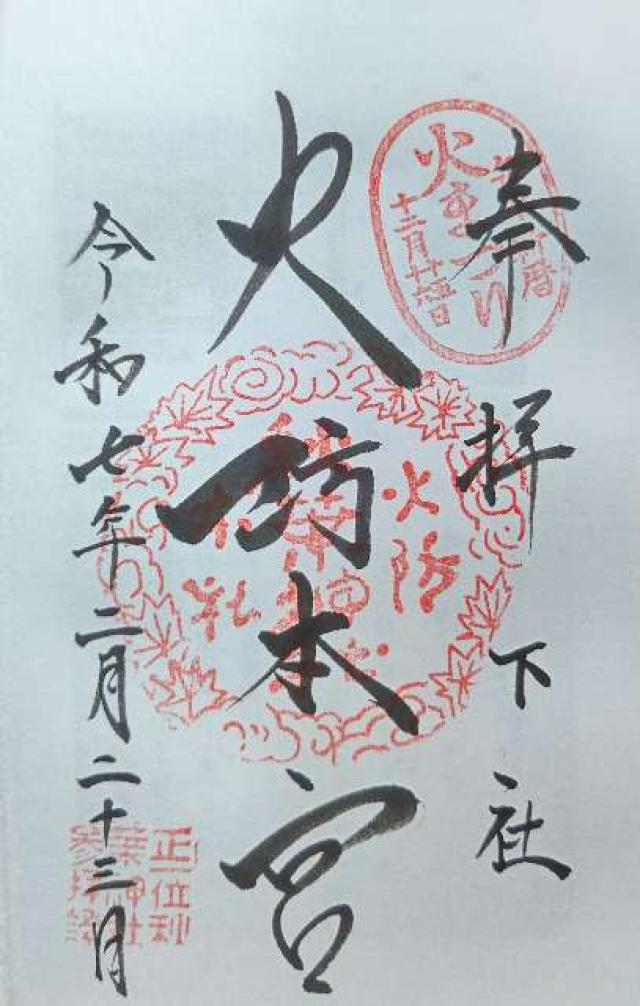 奉拝 下社
火防本宮
令和七年二月二十三日
火まつり
十二月
暦
火防
秋葉神社
正一位秋
葉神社
参拝